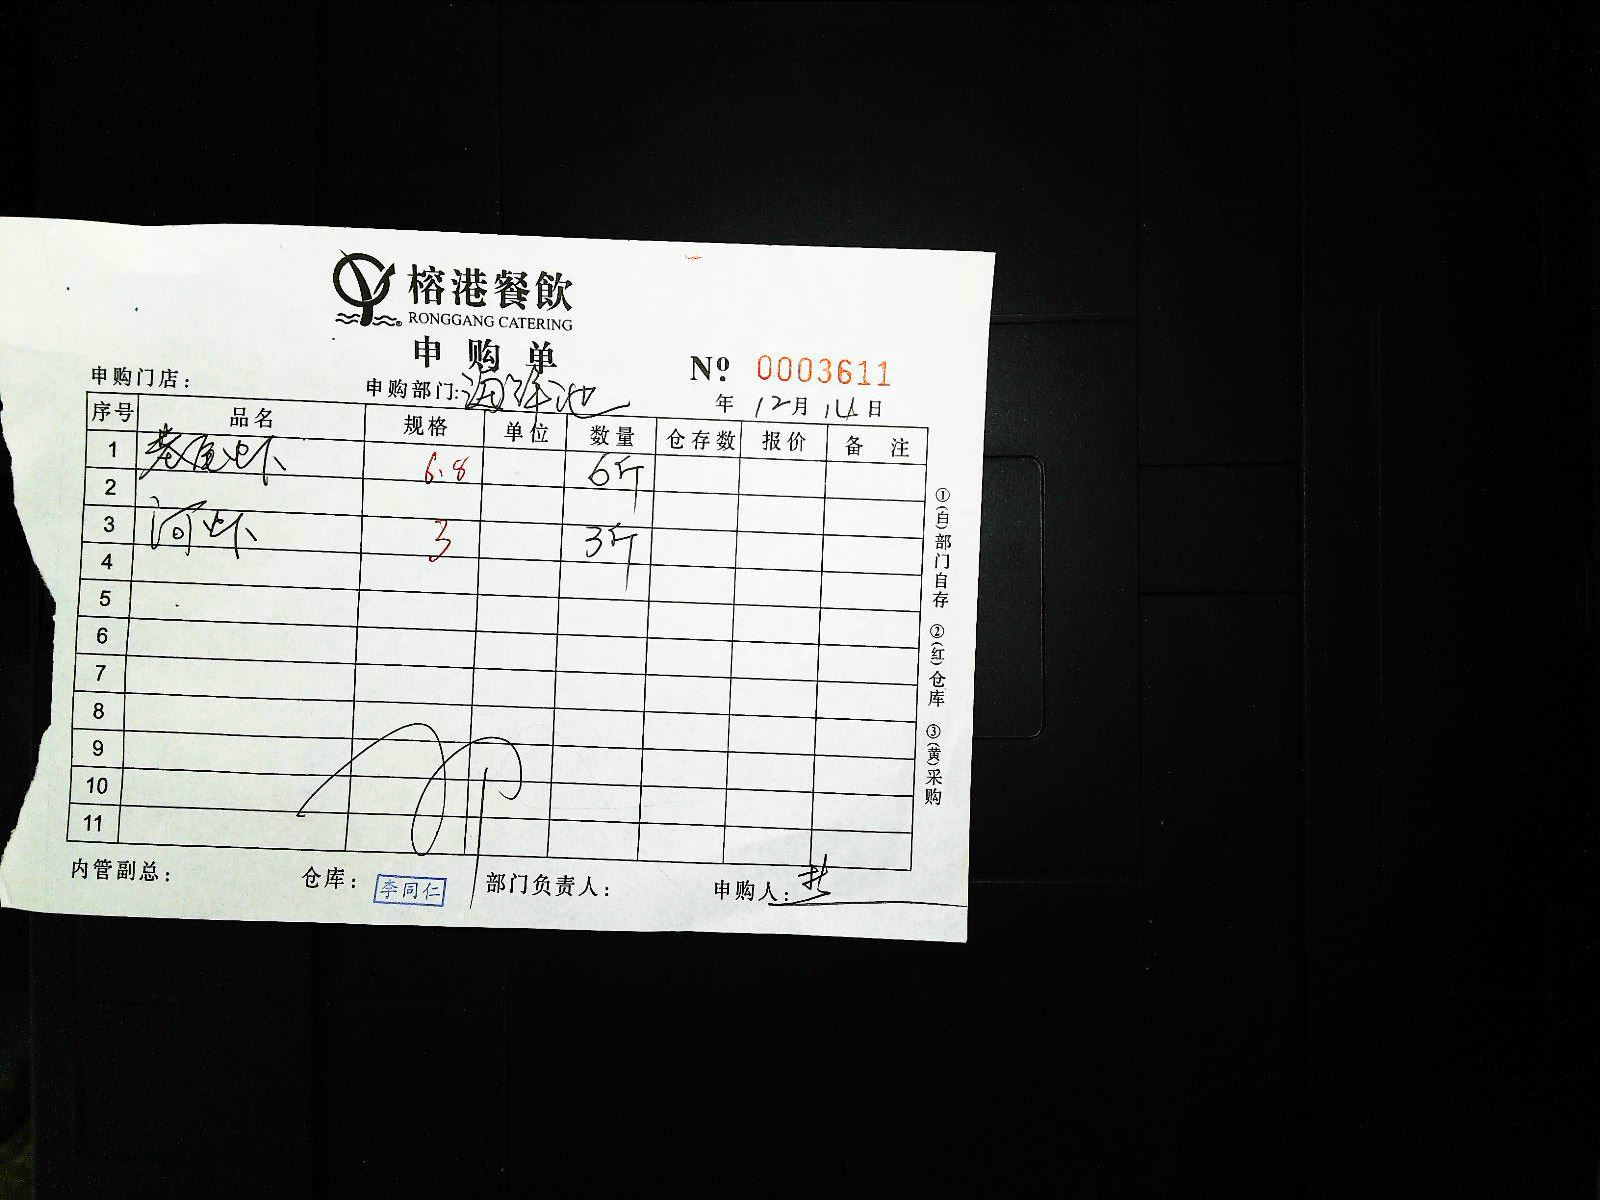 榕港餐飲
RONGGANG CATERING
申购单
№ 0003611
申购门店：
申购部门：海鲜池
年 12月 14日
序号 品名 规格 单位 数量 仓存数 报价 备注
1 基尾虾 6.8 6斤
2
3 河虾 3 3斤
4
5
6
7
8
9
10
11
①(白)部门自存 ②(红)仓库 ③(黄)采购
内管副总： 仓库：李同仁 部门负责人： 申购人：